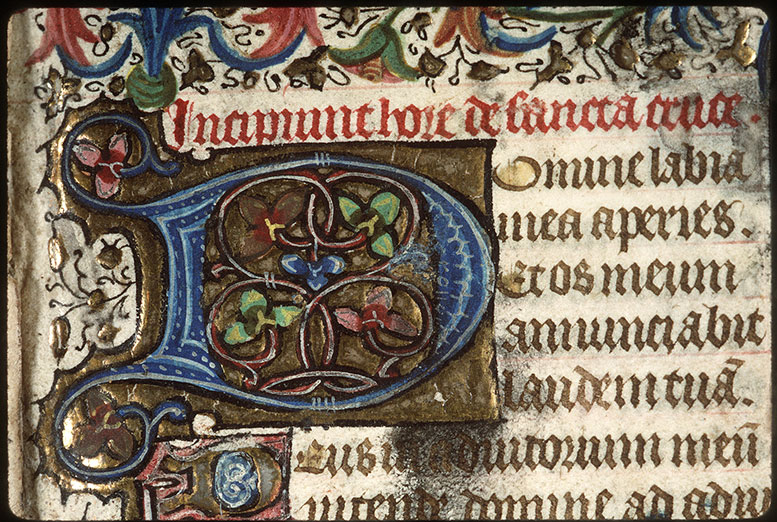 Incipiunt hore de sancta cruce.
Domine labia
mea aperies.
Et os meum
annunciabit
laudem tuā.
Deus in adiutorium meū
intende domine ad adiu